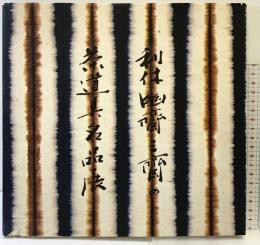 利休 幽斎 三斎の
茶道具名品展